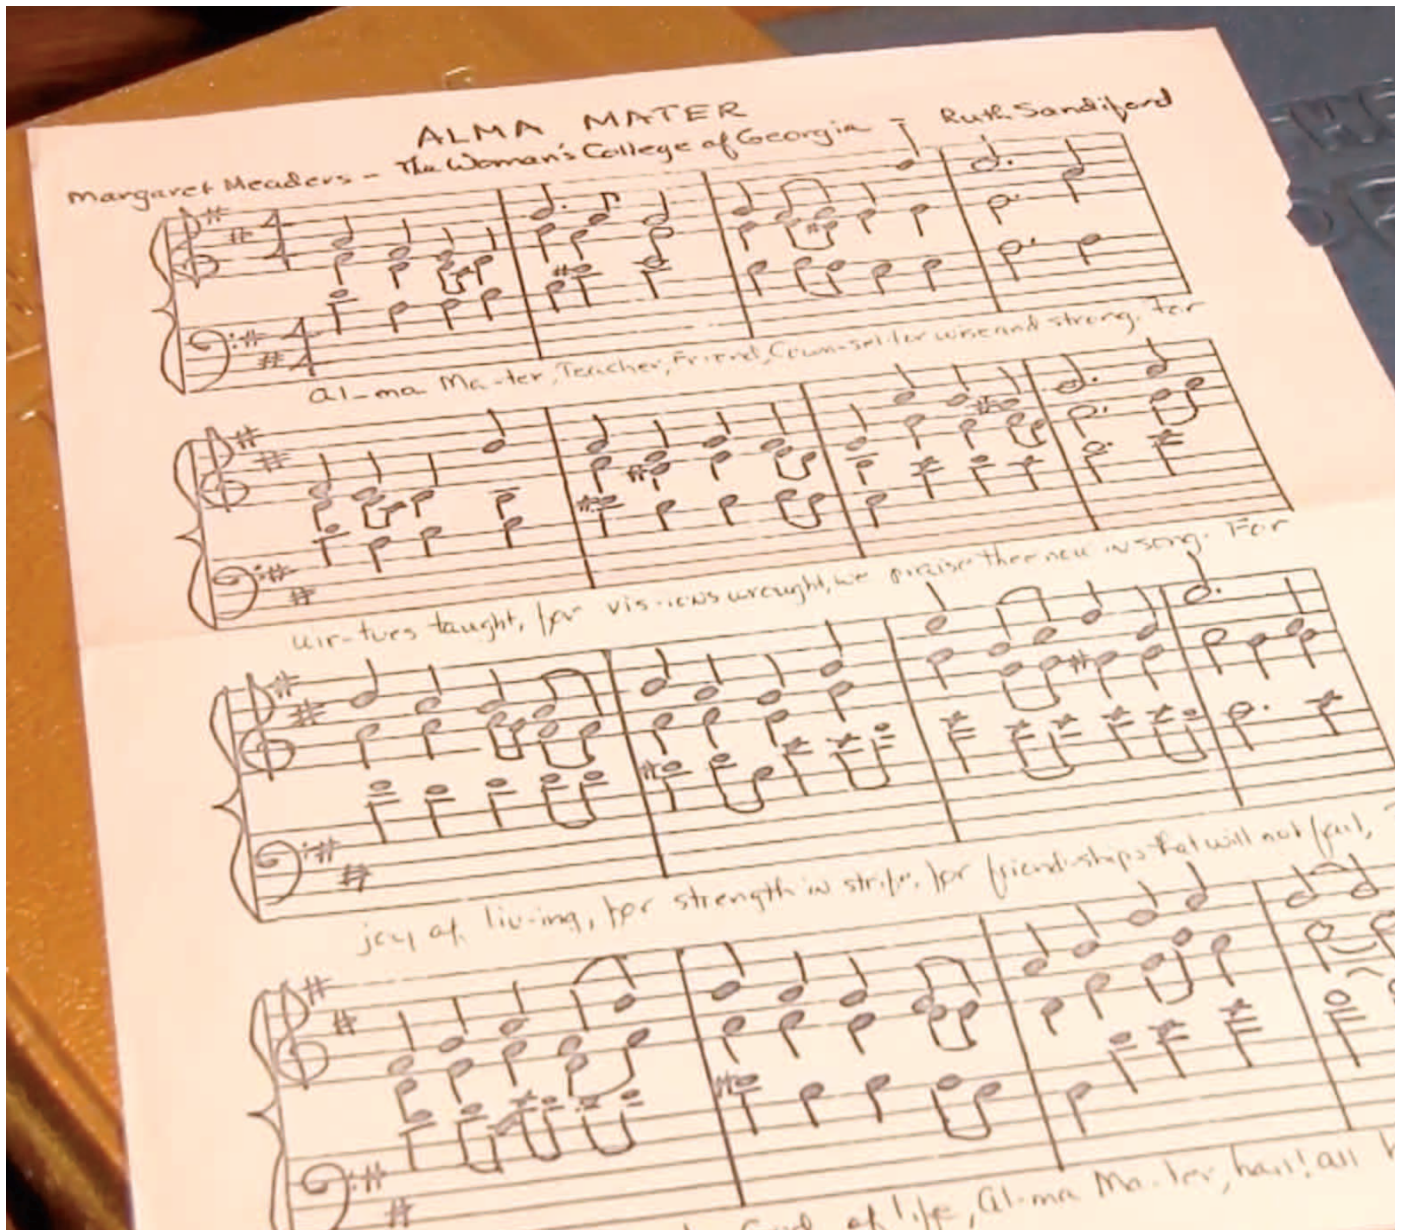 ALMA MATER
Margaret Meaders - The Woman's College of Georgia - Ruth Sandiford
4 4
Al-ma Ma-ter, Teacher, Friend, Coun-sel-lor wise and strong. For
vir-tues taught, for vis-ions wrought, we praise thee now in song. For
joy of liv-ing, for strength in strife, for friend-ships that will not fail,
God of life, Al-ma Ma-ter, hail! all